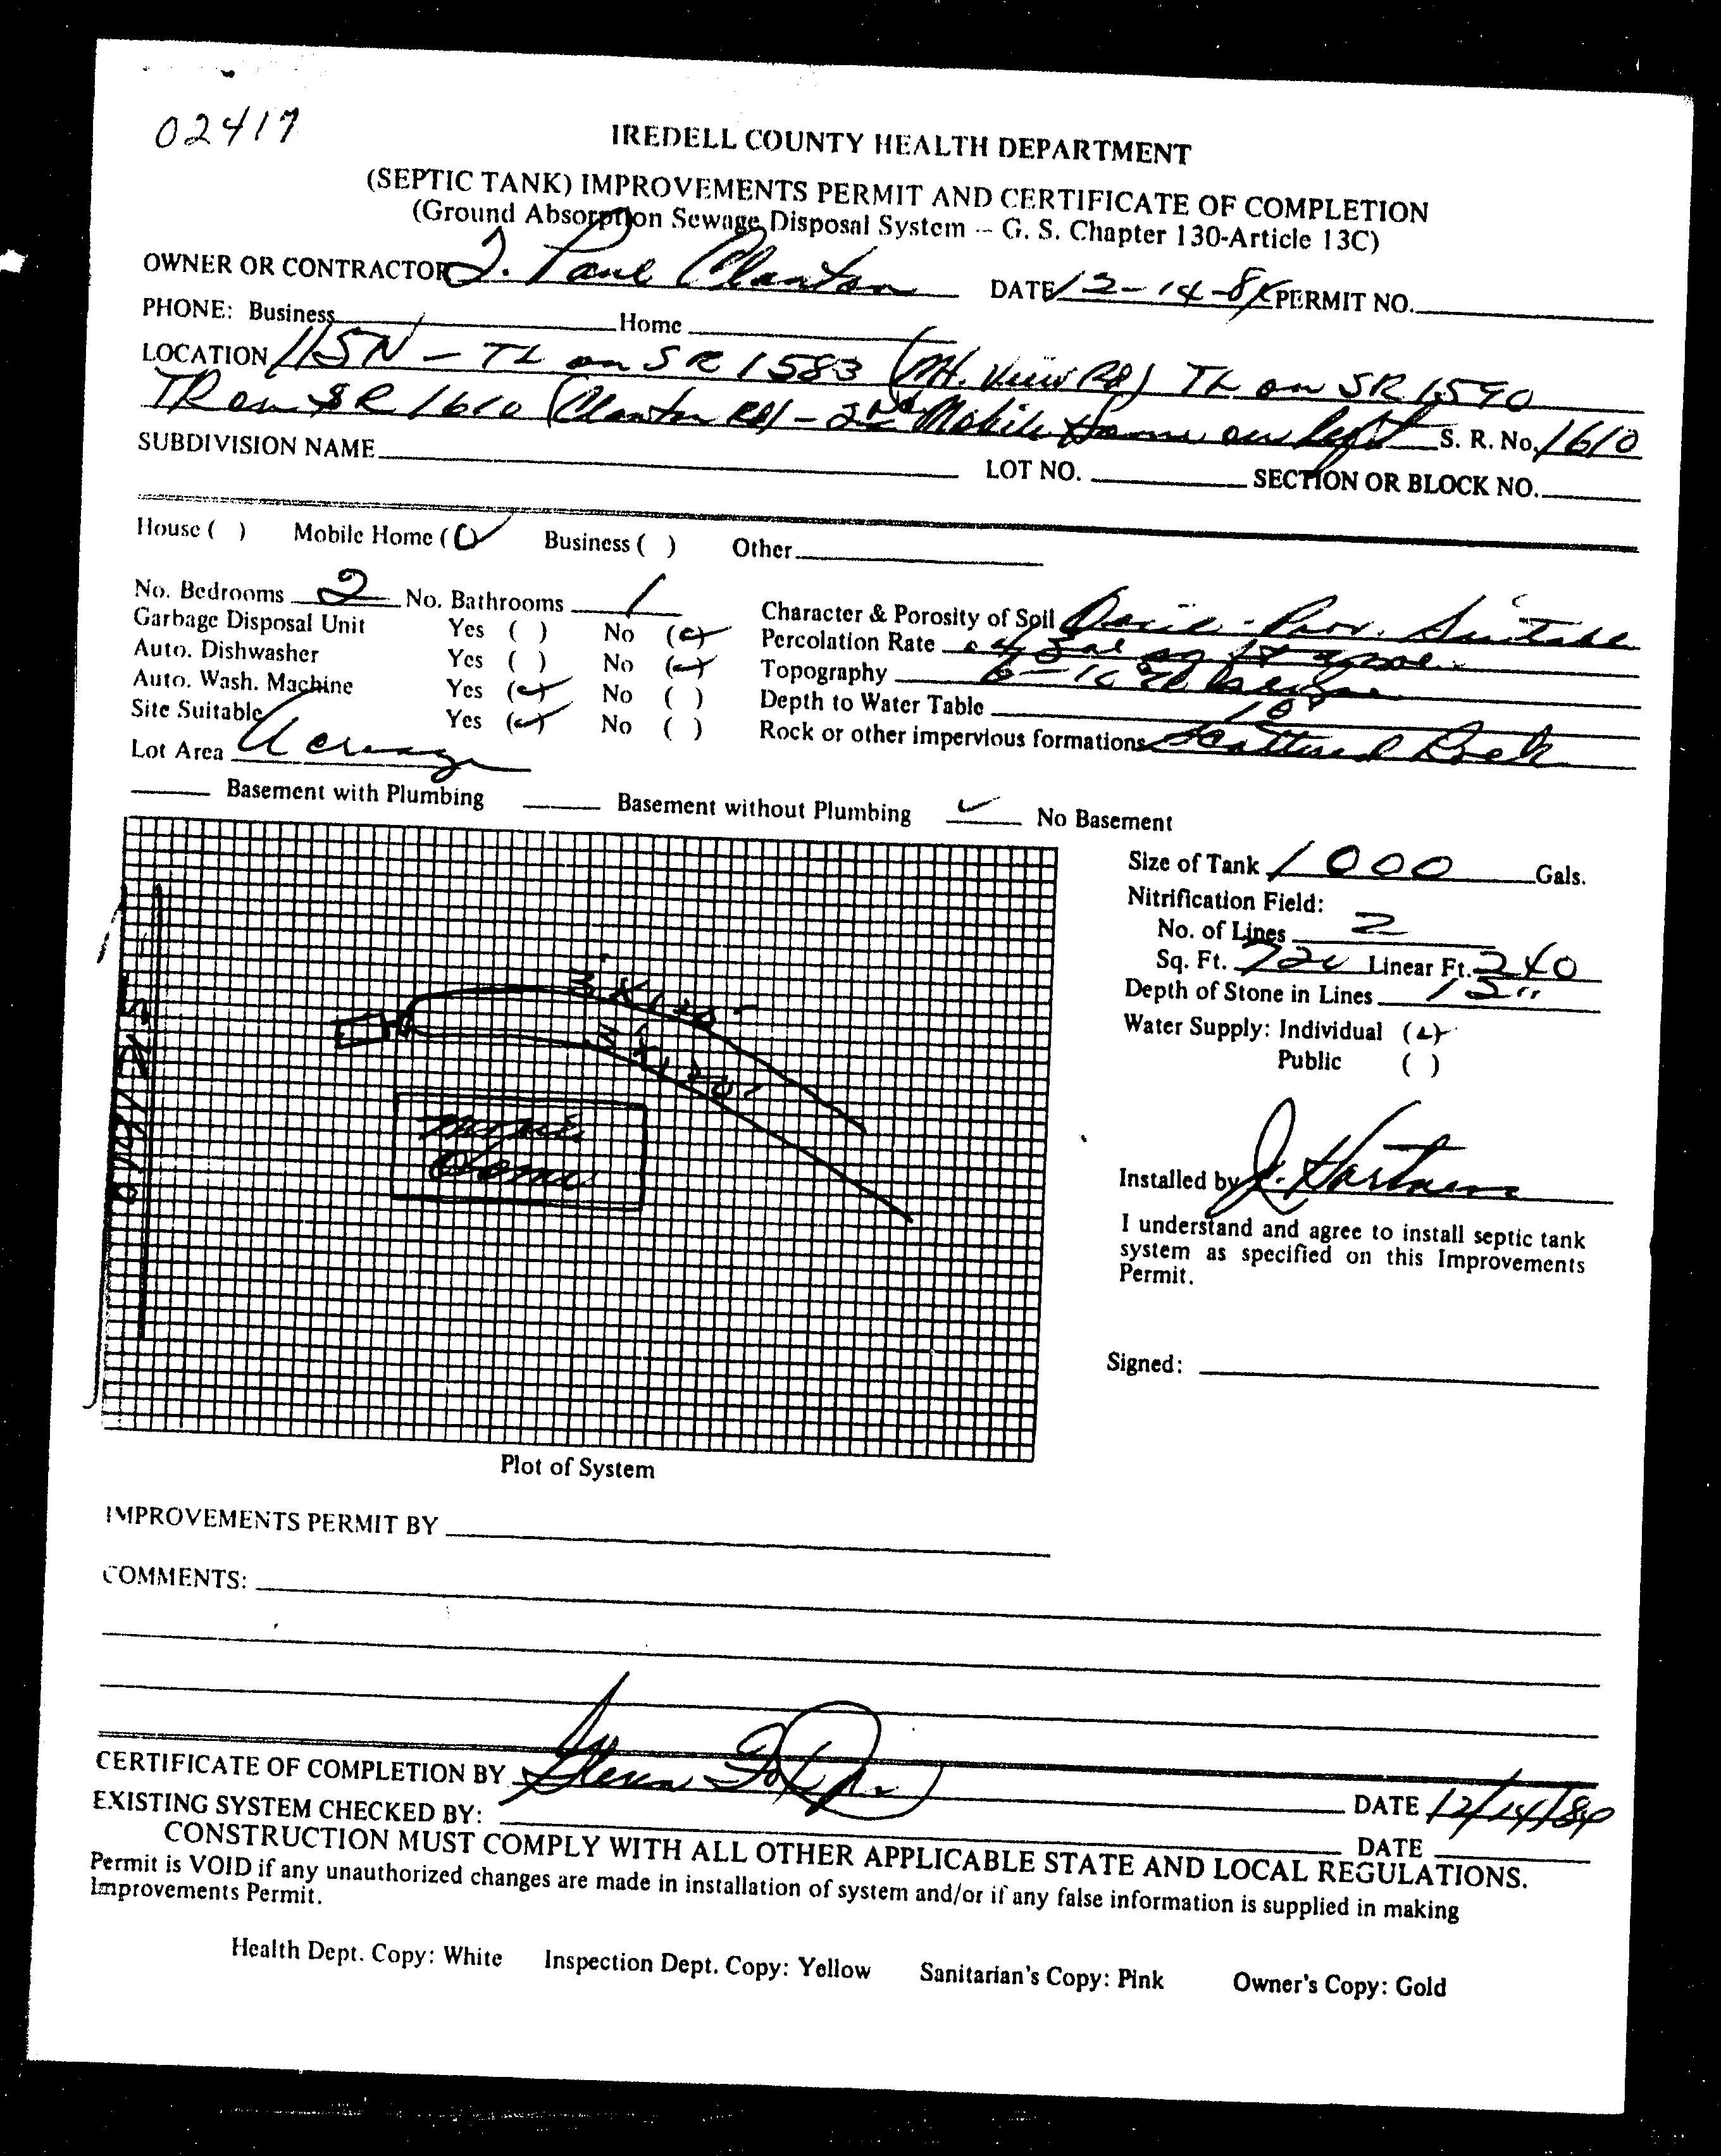 02417
IREDELL COUNTY HEALTH DEPARTMENT
(SEPTIC TANK) IMPROVEMENTS PERMIT AND CERTIFICATE OF COMPLETION
(Ground Absorption Sewage Disposal System -- G. S. Chapter 130-Article 13C)
OWNER OR CONTRACTOR J. Paul Clanton DATE 12-14-84 PERMIT NO.
PHONE: Business Home
LOCATION 115N - TL on SR 1583 (Mt. View Rd) TL on SR 1590
TR on SR 1610 (Clanton Rd) - 2nd Mobile Home on left S. R. No. 1610
SUBDIVISION NAME LOT NO. SECTION OR BLOCK NO.
House ( ) Mobile Home (✓) Business ( ) Other
No. Bedrooms 2 No. Bathrooms 1 Character & Porosity of Soil Davie - Prov. Suitable
Garbage Disposal Unit Yes ( ) No (✓) Percolation Rate .4 gal sq ft
Auto. Dishwasher Yes ( ) No (✓) Topography 6-10%
Auto. Wash. Machine Yes (✓) No ( ) Depth to Water Table
Site Suitable Yes (✓) No ( ) Rock or other impervious formations Scattered Rock
Lot Area Acreage
Basement with Plumbing Basement without Plumbing ✓ No Basement
Size of Tank 1000 Gals.
Nitrification Field:
No. of Lines 2
Sq. Ft. 720 Linear Ft. 240
Depth of Stone in Lines 12"
Water Supply: Individual (✓)
Public ( )
3' x 120'
3' x 120'
Mobile
Home
SR 1610
Installed by J. Hartness
I understand and agree to install septic tank
system as specified on this Improvements
Permit.
Signed:
Plot of System
IMPROVEMENTS PERMIT BY
COMMENTS:
CERTIFICATE OF COMPLETION BY DATE 12/14/84
EXISTING SYSTEM CHECKED BY: DATE
CONSTRUCTION MUST COMPLY WITH ALL OTHER APPLICABLE STATE AND LOCAL REGULATIONS.
Permit is VOID if any unauthorized changes are made in installation of system and/or if any false information is supplied in making
Improvements Permit.
Health Dept. Copy: White Inspection Dept. Copy: Yellow Sanitarian's Copy: Pink Owner's Copy: Gold